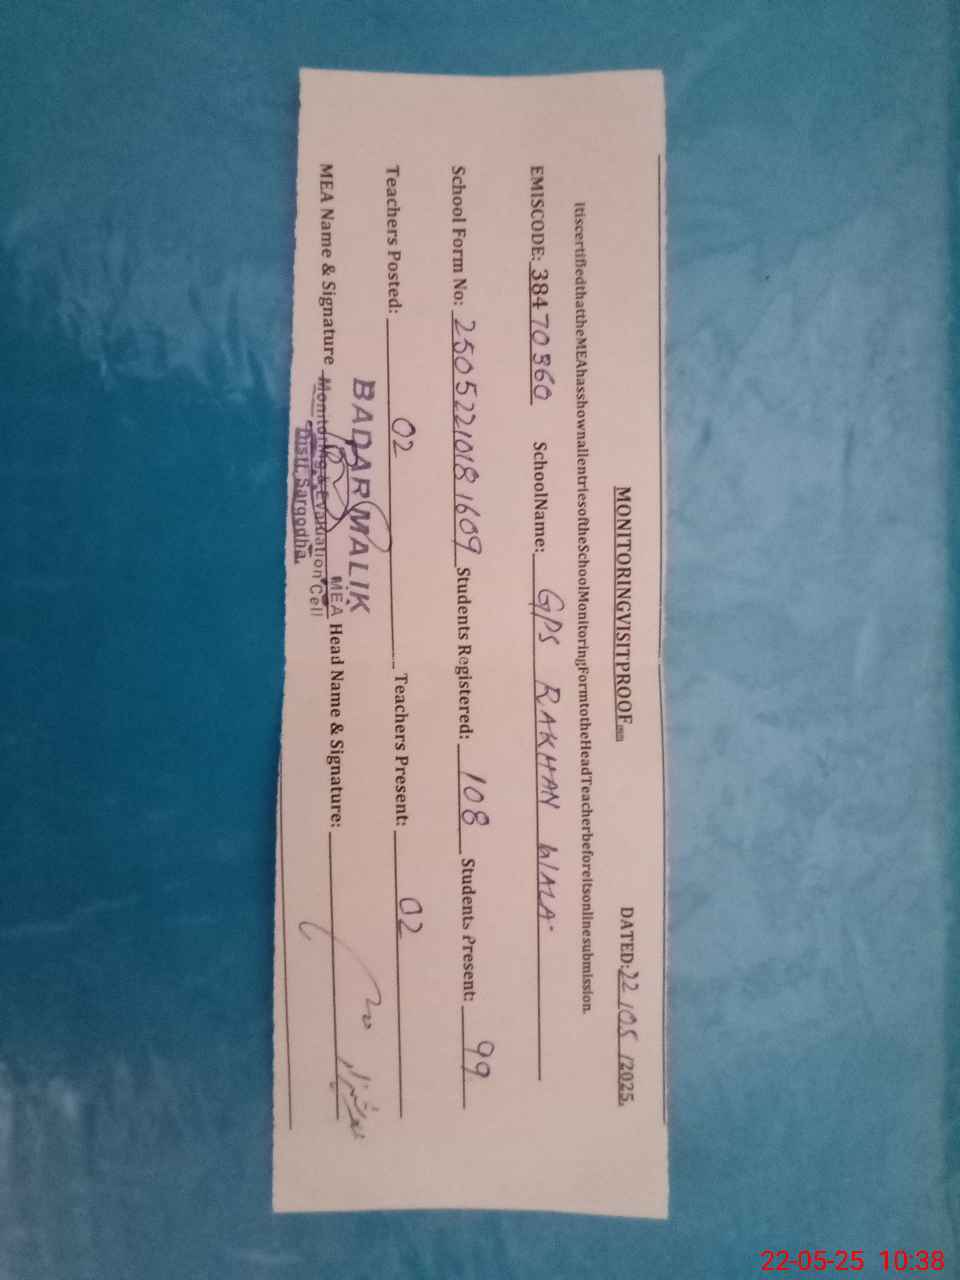 MONITORINGVISITPROOF
DATED: 22/05/2025.
ItiscertifiedthattheMEAhasshownallentriesoftheSchoolMonitoringFormtotheHeadTeacherbeforeitsonlinesubmission.
EMISCODE: 38470360 SchoolName: GPS RAKHAN WALA.
School Form No: 25052210181609 Students Registered: 108 Students Present: 99
Teachers Posted: 02 Teachers Present: 02
BADAR MALIK
MEA
MEA Name & Signature Head Name & Signature:
Monitoring & Evaluation Cell
Distt. Sargodha.
22-05-25 10:38